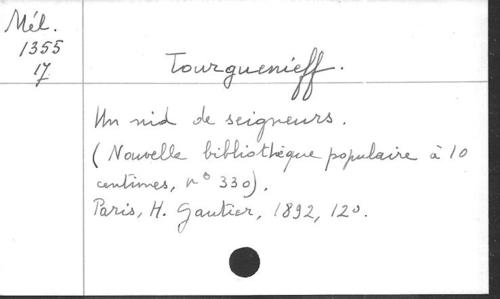 Mél.
1355
17
Tourguenieff.
Un nid de seigneurs.
(Nouvelle bibliothèque populaire à 10
centimes, n° 330).
Paris, H. Gautier, 1892, 12°.